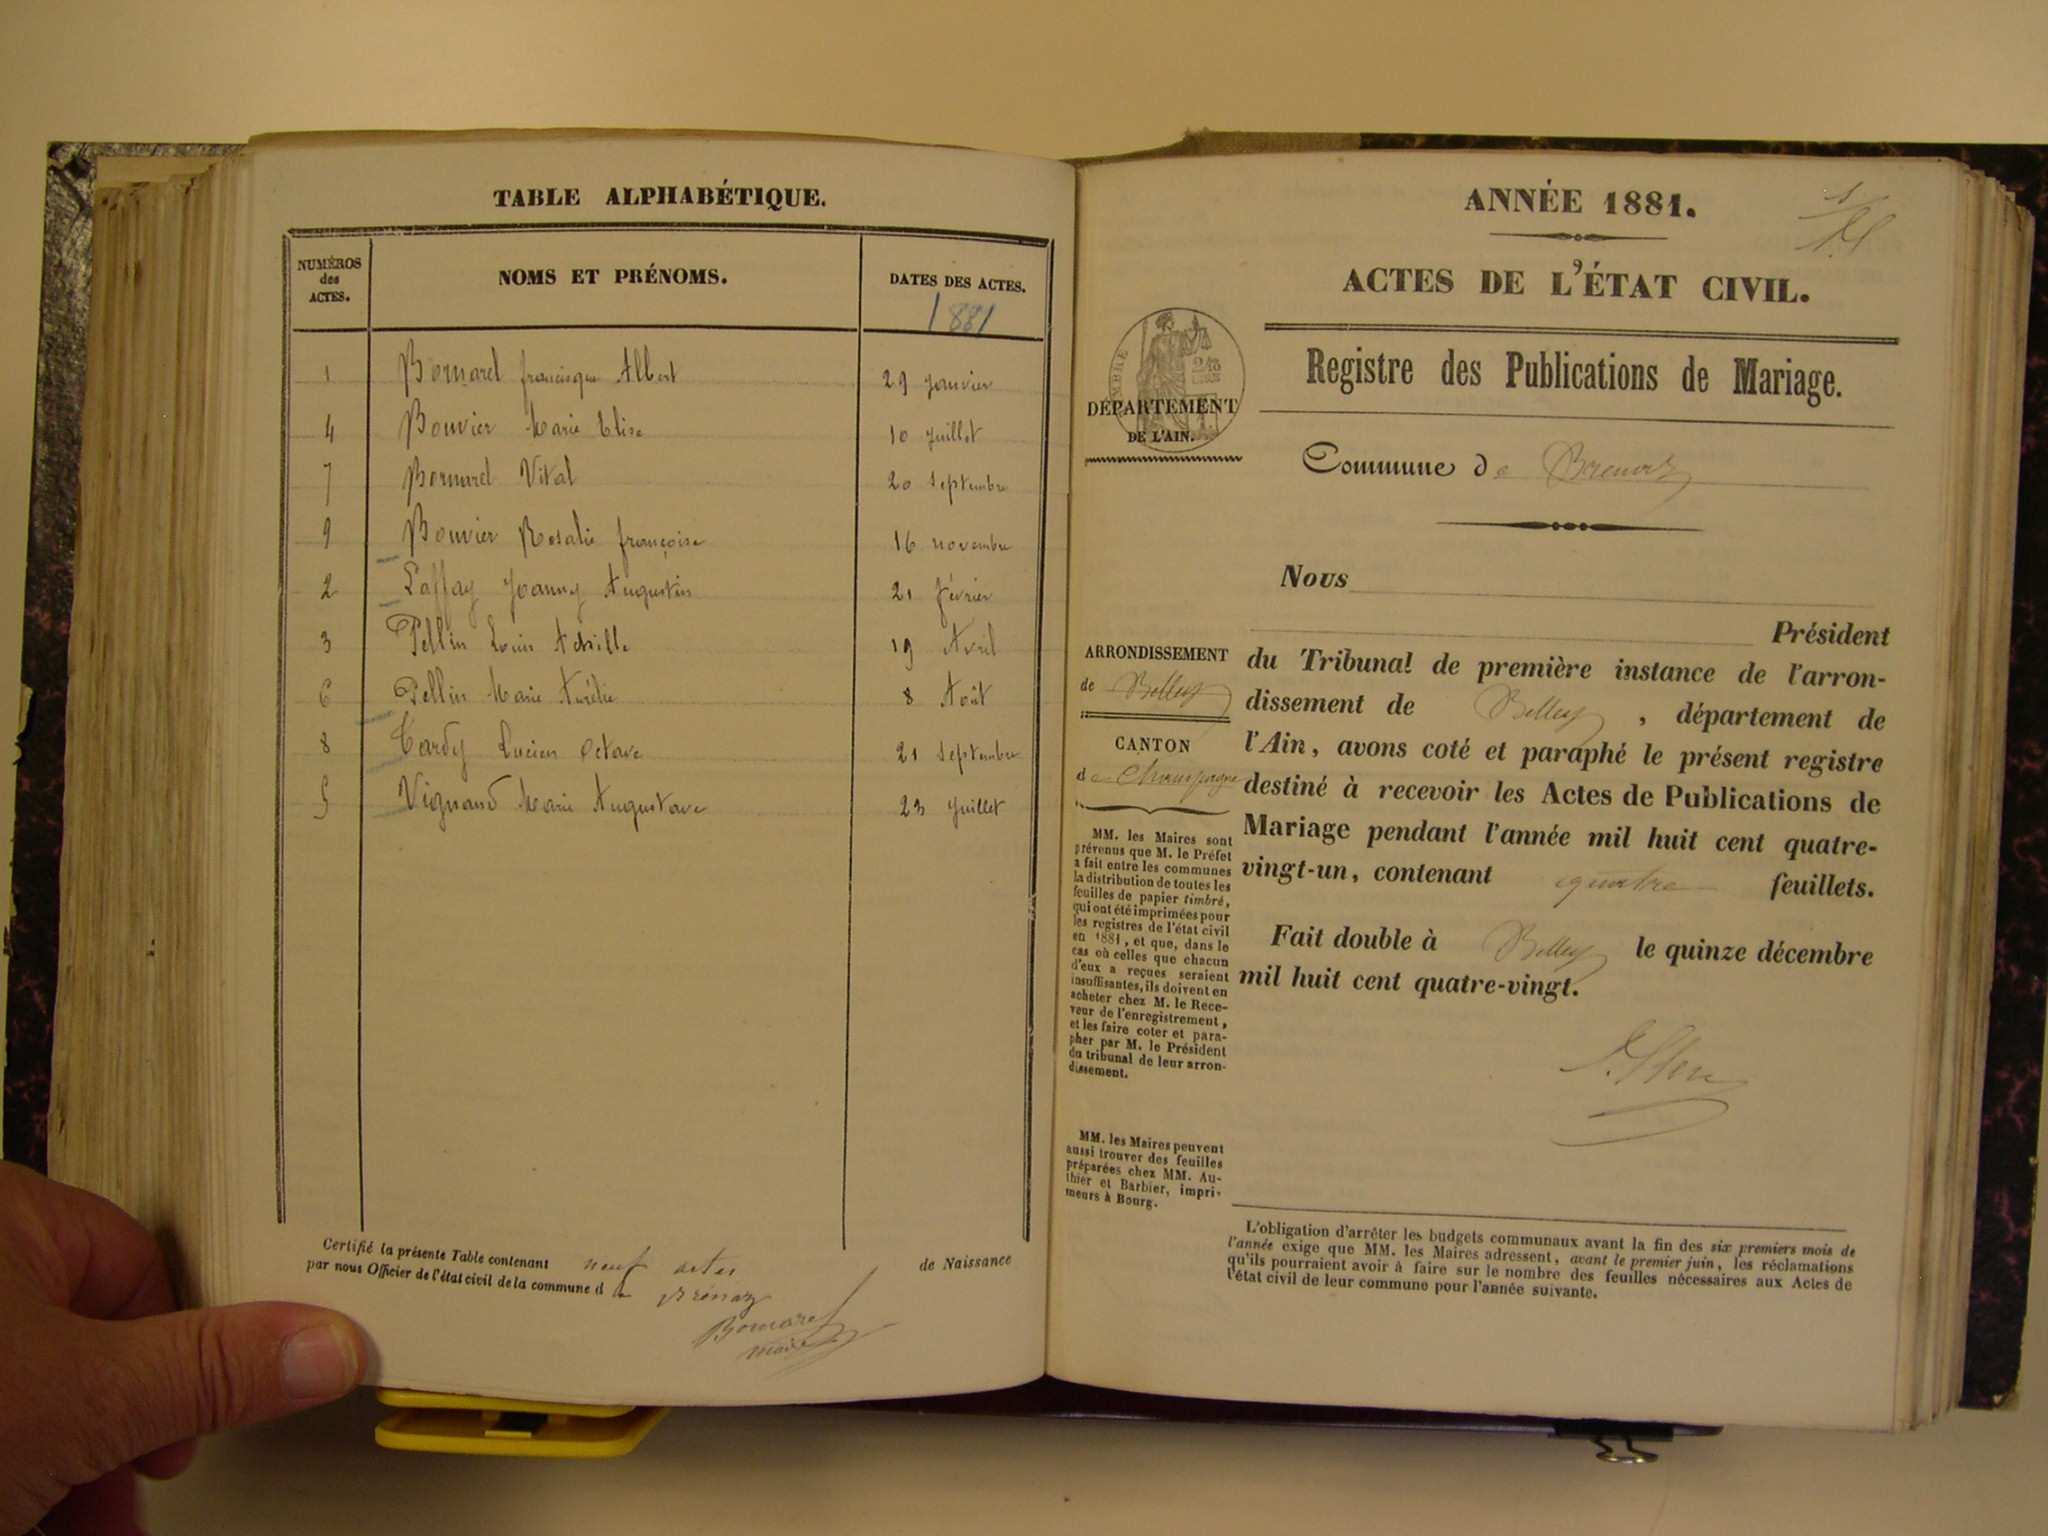 TABLE ALPHABÉTIQUE.
NUMÉROS
des
ACTES.
NOMS ET PRÉNOMS.
DATES DES ACTES.
1881
1 Bornarel francisque Albert 29 Janvier
4 Bouvier Marie Elise 10 Juillet
7 Bornarel Vital 20 Septembre
9 Bouvier Rosalie françoise 16 novembre
2 Laffay Joanny Augustin 21 Février
3 Pellin Louis Achille 19 Avril
6 Pellin Marie Aurélie 8 Août
8 Tardy Lucien Octave 21 Septembre
5 Vignand Marie Augustave 23 Juillet
Certifié la présente Table contenant neuf actes de Naissance
par nous Officier de l'état civil de la commune de Brénaz
Bornarel
maire
ANNÉE 1881.
ACTES DE L'ÉTAT CIVIL.
TIMBRE
DÉPARTEMENT
DE L'AIN.
Registre des Publications de Mariage.
Commune de Brenaz
Nous
Président
ARRONDISSEMENT
de Belley
CANTON
de Champagne
du Tribunal de première instance de l'arron-
dissement de Belley, département de
l'Ain, avons coté et paraphé le présent registre
destiné à recevoir les Actes de Publications de
Mariage pendant l'année mil huit cent quatre-
vingt-un, contenant quatre feuillets.
Fait double à Belley le quinze décembre
mil huit cent quatre-vingt.
MM. les Maires sont
prévenus que M. le Préfet
a fait entre les communes
la distribution de toutes les
feuilles de papier timbré,
qui ont été imprimées pour
les registres de l'état civil
en 1881, et que, dans le
cas où celles que chacun
d'eux a reçues seraient
insuffisantes, ils doivent en
acheter chez M. le Rece-
veur de l'enregistrement,
et les faire coter et para-
pher par M. le Président
du tribunal de leur arron-
dissement.
MM. les Maires peuvent
aussi trouver des feuilles
préparées chez MM. Au-
thier et Barbier, impri-
meurs à Bourg.
L'obligation d'arrêter les budgets communaux avant la fin des six premiers mois de
l'année exige que MM. les Maires adressent, avant le premier juin, les réclamations
qu'ils pourraient avoir à faire sur le nombre des feuilles nécessaires aux Actes de
l'état civil de leur commune pour l'année suivante.